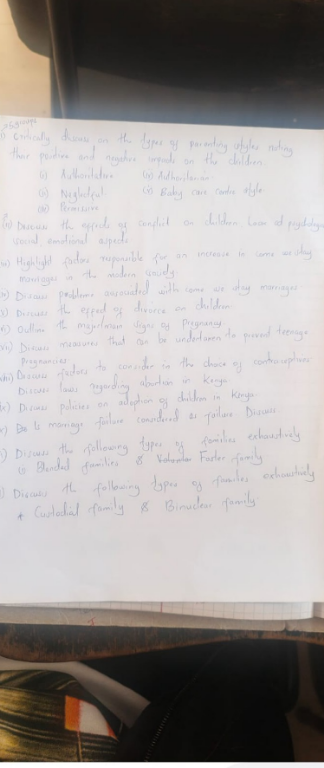 i) Critically discuss on the types of parenting styles noting
their positive and negative impacts on the children.
(i) Authoritative (iv) Authoritarian
(ii) Neglectful (v) Baby care centre style
(iii) Permissive
Discuss the effects of conflict on children
social emotional aspects
Highlight factors responsible for an increase in come we stay
marriages in the modern society
Discuss problems associated with come we stay marriages
Discuss the effect of divorce on children
Outline the major signs of Pregnancy
Discuss measures that can be undertaken to prevent teenage
Pregnancies
Discuss factors to consider in the choice of contraceptives
Discuss laws regarding abortion in Kenya.
Discuss policies on adoption of children in Kenya.
marriage failure considered as failure Discuss
Discuss the following types of families exhaustively
(i) Blended families & Foster family
Discuss the following types of families exhaustively
* Custodial family & Binuclear family.